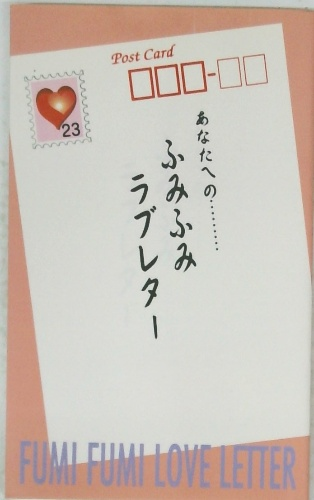 Post Card
23
あなたへの………
ふみふみ
ラブレター
FUMI FUMI LOVE LETTER